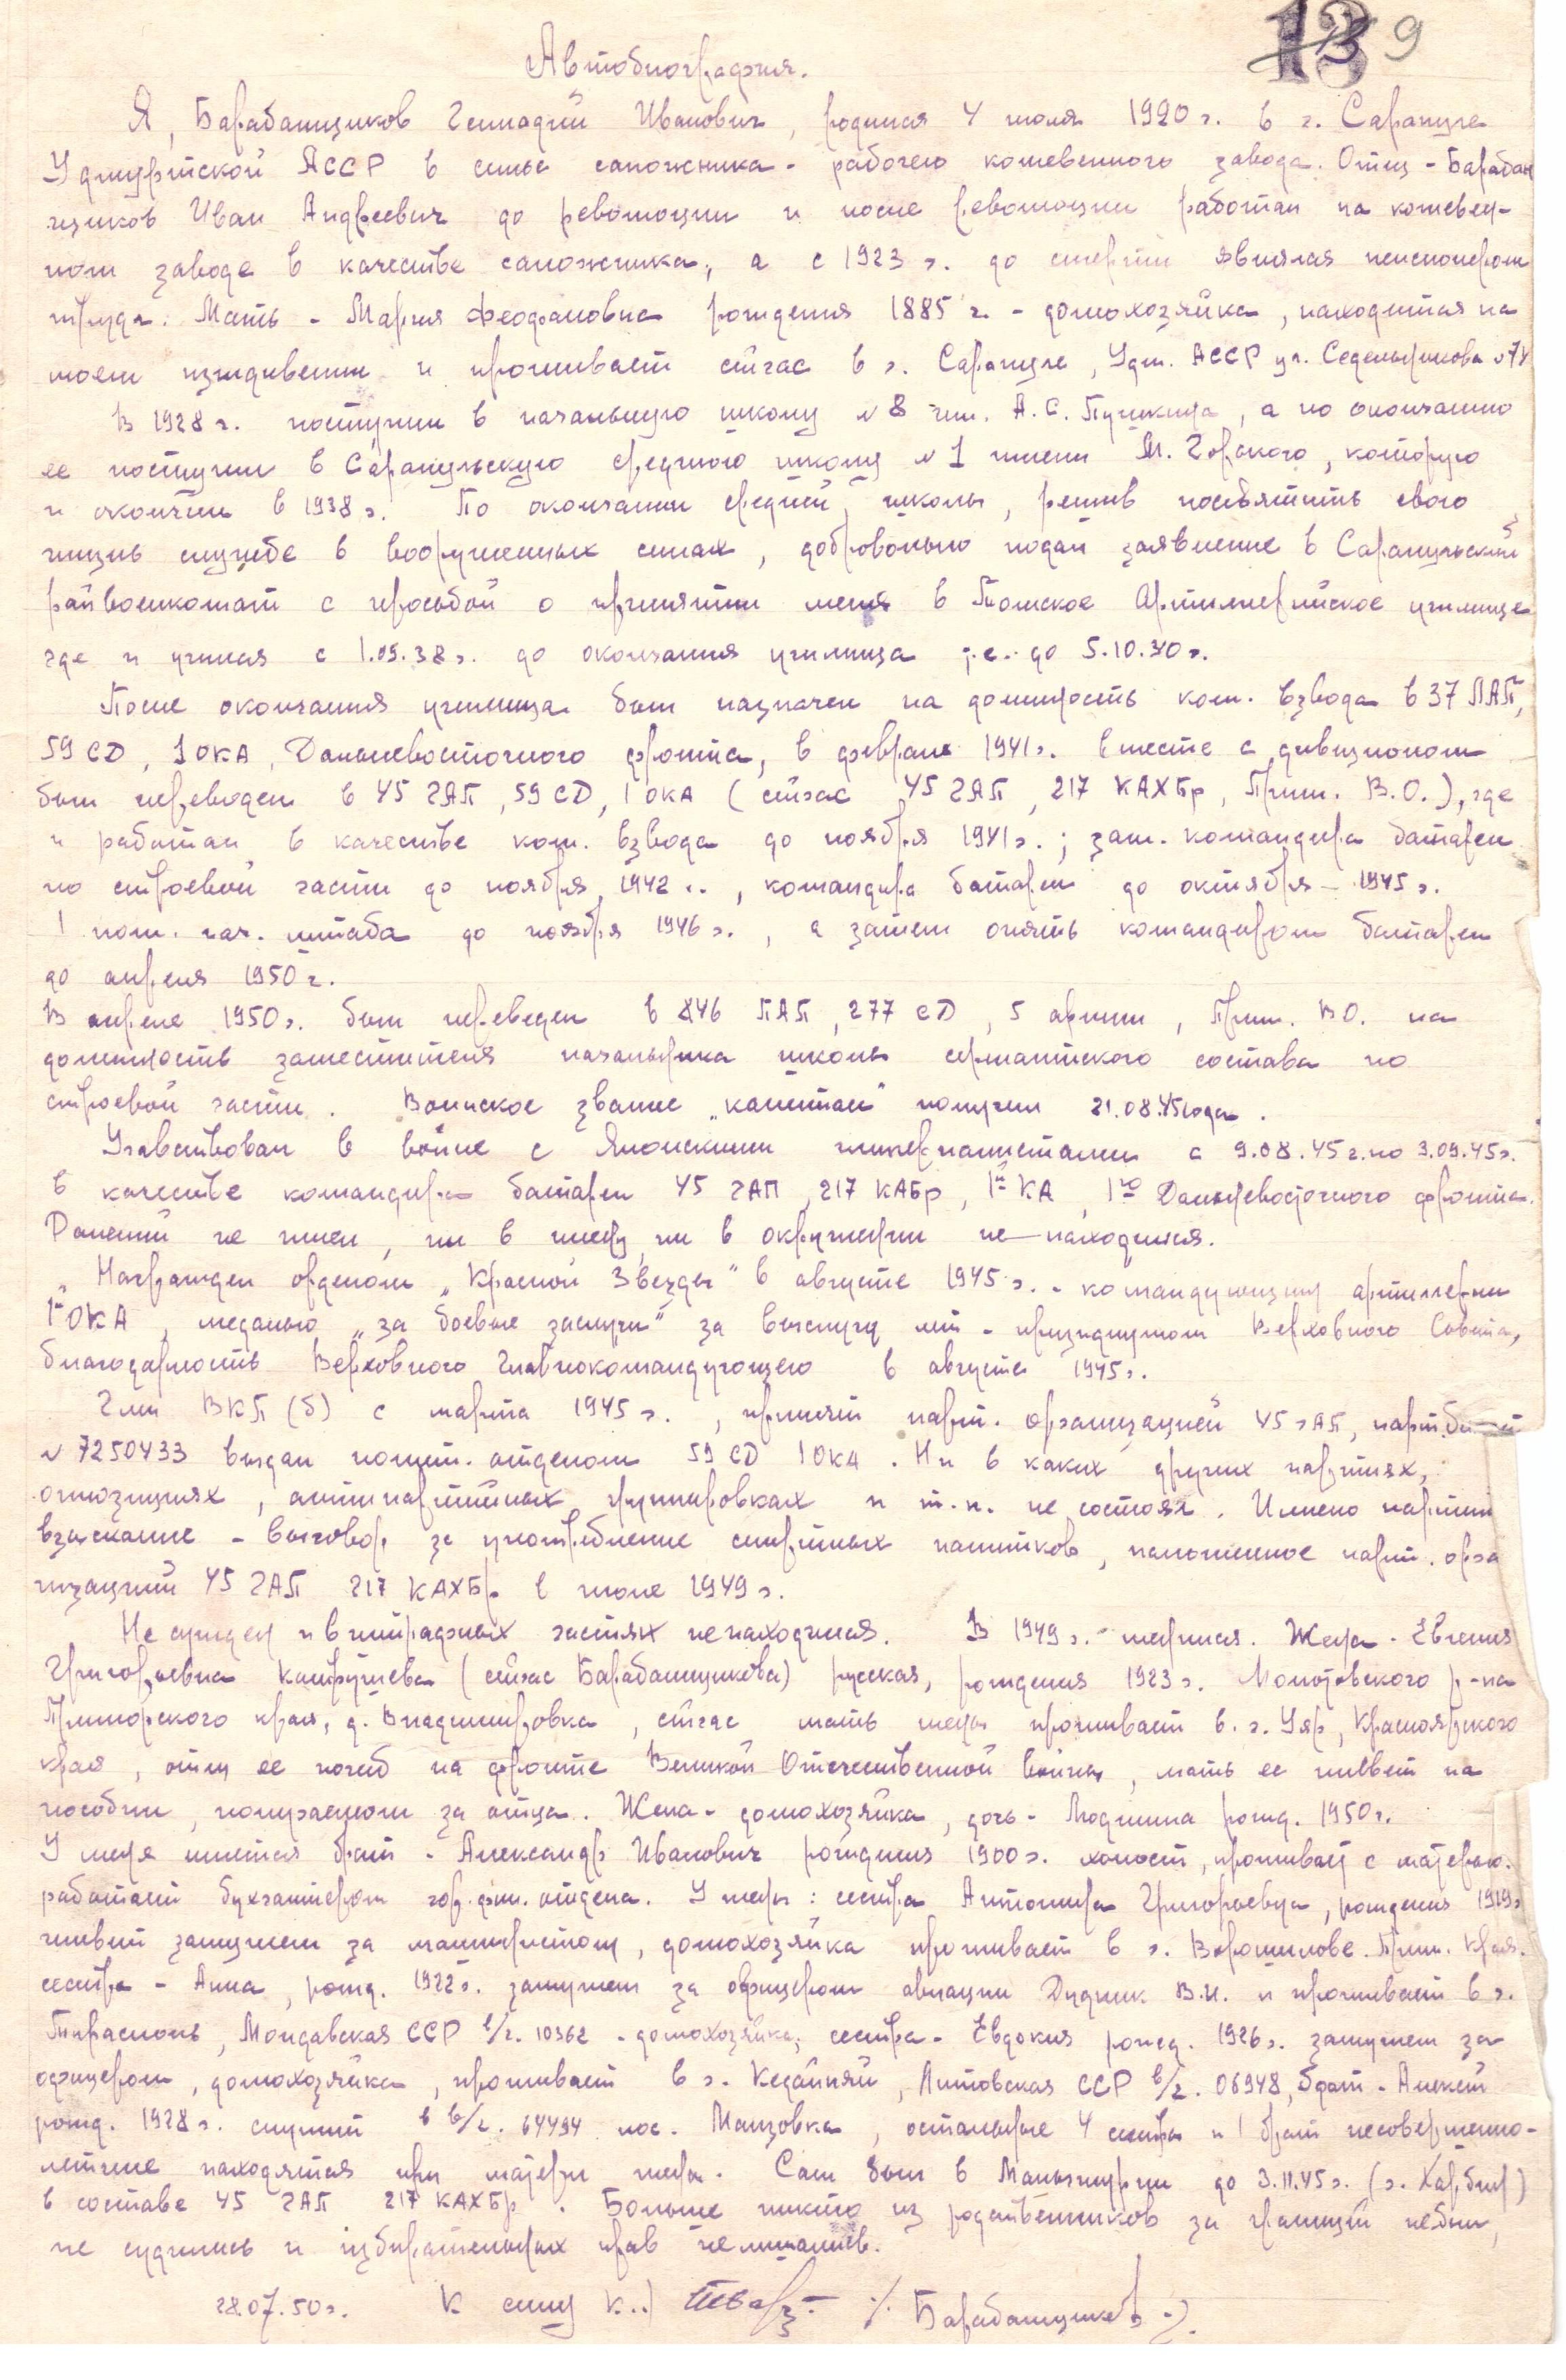 13 9
Автобиография.
Я, Барабанщиков Геннадий Иванович, родился 4 июля 1920 г. в г. Сарапуле
Удмуртской АССР в семье сапожника - рабочего кожевенного завода. Отец - Барабан
щиков Иван Андреевич до революции и после революции работал на кожевен-
ном заводе в качестве сапожника, а с 1923 г. до смерти являлся пенсионером
труда. Мать - Мария Феофановна рождения 1885 г. - домохозяйка, находится на
моем иждивении и проживает сейчас в г. Сарапуле, Удм. АССР ул. Седельникова №74
В 1928 г. поступил в начальную школу №8 им. А.С. Пушкина, а по окончанию
ее поступил в Сарапульскую среднюю школу №1 имени М. Горького, которую
и окончил в 1938 г. По окончании средней школы, решив посвятить свою
жизнь службе в вооруженных силах, добровольно подал заявление в Сарапульский
райвоенкомат с просьбой о принятии меня в Томское Артиллерийское училище
где и учился с 1.09.38 г. до окончания училища т.е. до 5.10.40 г.
После окончания училища был назначен на должность ком. взвода в 37 ЛАП,
59 СД, 1 ОКА, Дальневосточного фронта, в феврале 1941 г. вместе с дивизионом
был переведен в 45 ГАП, 59 СД, 1 ОКА (сейчас 45 ГАП, 217 КАХБр, Прим. В.О.), где
и работал в качестве ком. взвода до ноября 1941 г.; зам. командира батареи
по строевой части до ноября 1942 г., командира батареи до октября - 1945 г.
1 пом. нач. штаба до ноября 1946 г., а затем опять командиром батареи
до апреля 1950 г.
В апреле 1950 г. был переведен в 846 ПАП, 277 СД, 5 армии, Прим. ВО. на
должность заместителя начальника школы сержантского состава по
строевой части. Воинское звание „капитан" получил 21.08.45 года.
Учавствовал в войне с Японскими империалистами с 9.08.45 г. по 3.09.45 г.
в качестве командира батареи 45 ГАП, 217 КАБр, 1й КА, 1го Дальневосточного фронта.
Ранений не имел, ни в плену ни в окружении не находился.
Награжден орденом „Красной Звезды" в августе 1945 г. - командующим артиллерии
1й ОКА, медалью „за боевые заслуги" за выслугу лет - президиумом Верховного Совета,
благодарность Верховного Главнокомандующего в августе 1945 г.
Член ВКП(б) с марта 1945 г., принят парт. организацией 45 ГАП, парт.билет
№ 7250433 выдан полит. отделом 59 СД 1 ОКА. Ни в каких других партиях,
оппозициях, антипартийных группировках и т.п. не состоял. Имею партий
взыскание - выговор за употребление спиртных напитков, наложенное парт. орга
низацией 45 ГАП 217 КАХБр в июне 1949 г.
Не судим и в штрафных частях не находился. В 1949 г. женился. Жена - Евгения
Григорьевна (сейчас Барабанщикова) русская, рождения 1923 г. Молотовского р-на
Приморского края, д. Владимировка, сейчас мать жены проживает в г. Уяр, Красноярского
края, отец ее погиб на фронте Великой Отечественной войны, мать ее живет на
пособии, получаемом за отца. Жена - домохозяйка, дочь - Людмила рожд. 1950 г.
У меня имеется брат - Александр Иванович рождения 1900 г. холост, проживает с матерью.
работает бухгалтером гор. фин. отдела. У жены: сестра Антонина Григорьевна, рождения 1919 г
живет замужем за машинистом, домохозяйка проживает в г. Ворошилове Прим. края.
сестра - Анна, рожд. 1922 г. замужем за офицером авиации Дудник В.И. и проживает в г.
Тирасполь, Молдавская ССР в/ч. 10362 - домохозяйка, сестра - Евдокия рожд. 1926 г. замужем за
офицером, домохозяйка, проживает в г. Кедайняй, Литовская ССР в/ч. 06948, брат - Алексей
рожд. 1928 г. служит в в/ч. 64494 пос. Манзовка, остальные 4 сестры и 1 брат несовершенно-
летние находятся при матери жены. Сам был в Маньчжурии до 3.11.45 г. (г. Харбин)
в составе 45 ГАП 217 КАХБр. Больше никто из родственников за границей не был,
не судились и избирательных прав не лишались.
28.07.50 г. К Барабанщиков